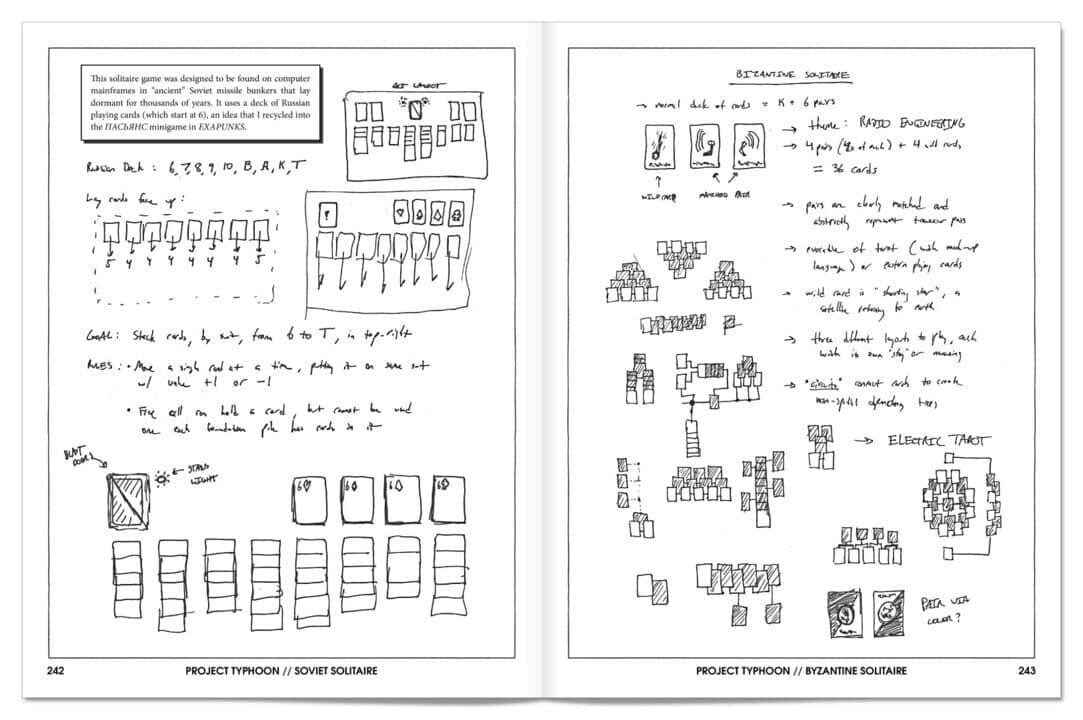 This solitaire game was designed to be found on computer
mainframes in "ancient" Soviet missile bunkers that lay
dormant for thousands of years. It uses a deck of Russian
playing cards (which start at 6), an idea that I recycled into
the ПАСЬЯНС minigame in EXAPUNKS.
Russian Deck : 6, 7, 8, 9, 10, B, A, K, T
Lay cards face up :
5 4 4 4 4 4 4 5
GOAL: Stack cards, by suit, from 6 to T, in top-right
RULES: • Move a single card at a time, putting it on same suit
w/ value +1 or -1
• Free cell can hold a card, but cannot be used
once each foundation pile has cards in it
BLAST
DOORS
STATUS
LIGHT
6 6 6 6
242
PROJECT TYPHOON // SOVIET SOLITAIRE
BYZANTINE SOLITAIRE
→ normal deck of cards = K + 6 pairs
WILD CARD
MATCHED PAIR
→ theme: RADIO ENGINEERING
→ 4 pairs (4x of each) + 4 wild cards
= 36 cards
→ pairs are clearly matched and
abstractly represent pairs
→ evocative of tarot (with made-up
language) or eastern playing cards
→ wild card is "shooting star", a
satellite returning to earth
→ three different layouts to play, each
with its own "story" or meaning
→ "circuits" connect cards to create
non-spatial dependency trees
→ ELECTRIC TAROT
PAIR VIA
COLOR?
PROJECT TYPHOON // BYZANTINE SOLITAIRE
243